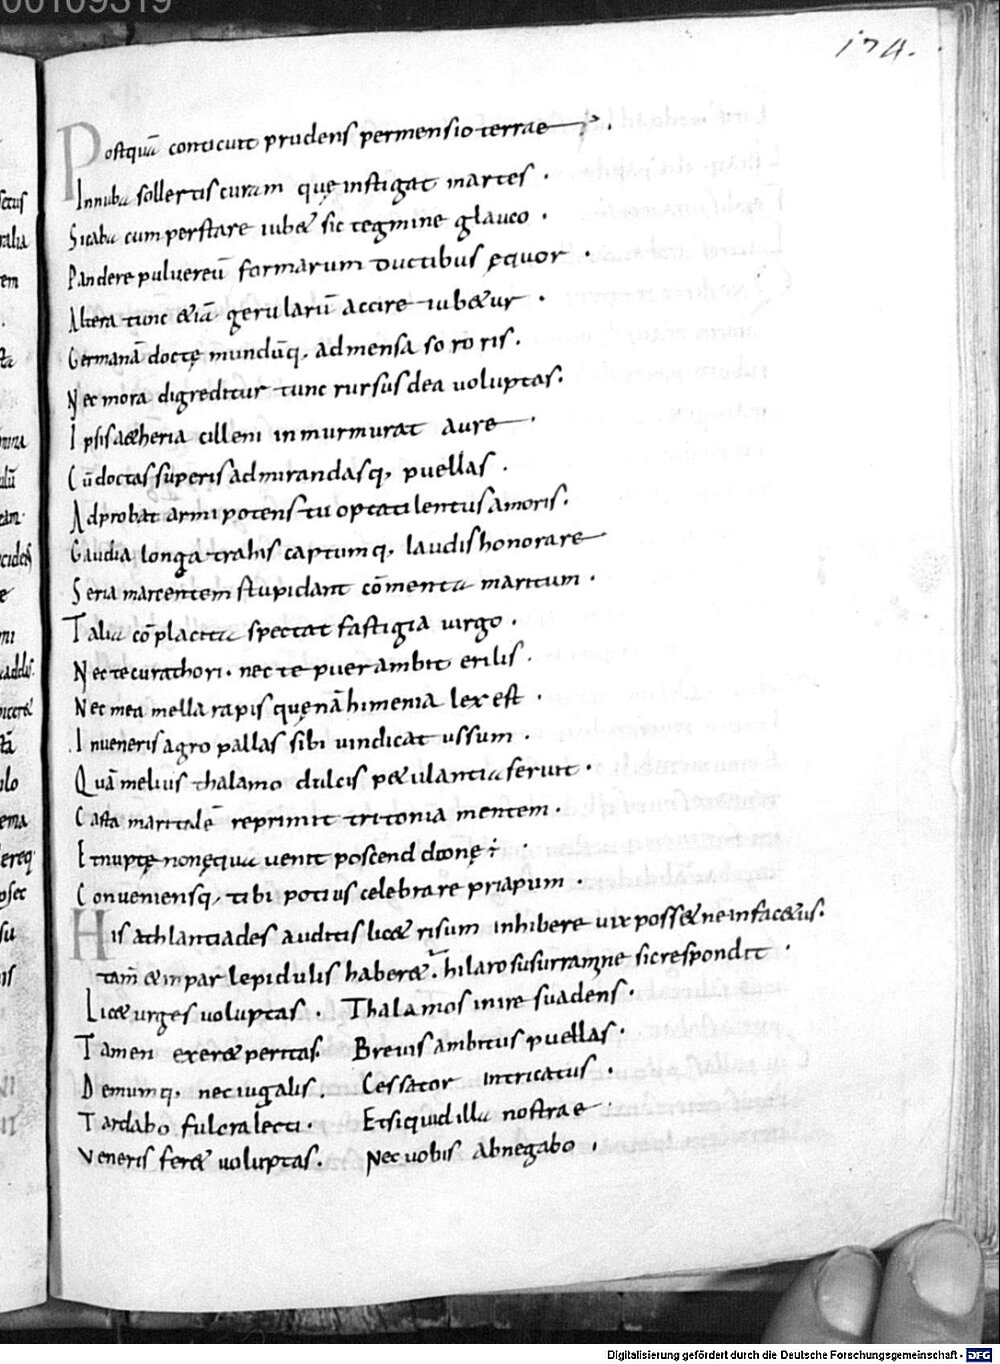 00109319
174.
Postquā conticuit prudens permensio terrae
Innuba sollertis curam quę instigat martes.
Sic abacum perstare iubet sic tegmine glauco.
Pandere pulvereū formarum ductibus ęquor.
Altera tunc etiā gerularū accire iubetur.
Germanā doctę mundūq, ad mensa sororis.
Nec mora digreditur tunc rursus dea voluptas.
Ipsis aetheria cilleni inmurmurat aure.
Cū doctas superis admirandasq, puellas.
Adprobat armipotens tu optati lentus amoris.
Gaudia longa trahis captumq, laudis honorare
Seria marcentem stupidant cōmenta maritum.
Talia cōplacita spectat fastigia virgo.
Nec te cura thori. nec te puer ambit erilis.
Nec mea mella rapis quęnā himenia lex est.
In veneris agro pallas sibi vindicat ussum.
Quā melius thalamo dulcis petulantia fervit.
Casta maritalē reprimit tritonia mentem.
Et nuptę non ęqua venit poscend dionę
Conveniensq, tibi potius celebrare priapum.
His athlantiades auditis licet risum inhibere vix posset ne infacetus.
tam̄ et inpar lepidulis haberet. hilaro susurramine sic respondit.
Licet urges voluptas. Thalamos inire suadens.
Tamen exeret peritas. Brevis ambitus puellas.
Demumq, nec iugalis. Cessator intricatus.
Tardabo fulcra lecti. Et siquid illa nostrae
Veneris feret voluptas. Nec vobis abnegabo.
Digitalisierung gefördert durch die Deutsche Forschungsgemeinschaft - DFG